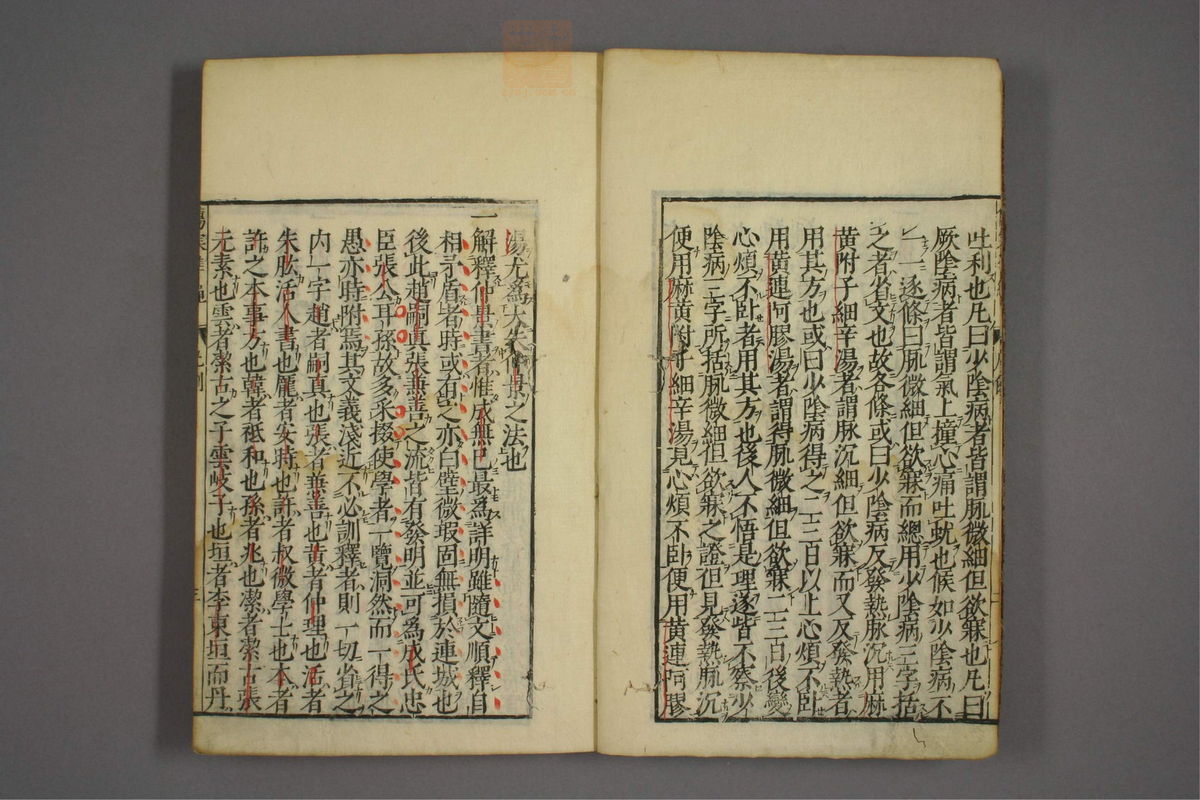 吐利也凡曰少陰病者皆謂脈微細但欲寐也凡曰
厥陰病者皆謂氣上撞心痛吐蚘也候如少陰病不
一一逐條曰脈微細但欲寐而總用少陰病三字括
之者省文也故各條或曰少陰病反發熱脈沉用麻
黃附子細辛湯者謂脈沉細但欲寐而又反發熱者
用其方也或曰少陰病得之二三日以上心煩不臥
用黃連阿膠湯者謂得脈微細但欲寐二三日後變
心煩不臥者用其方也後人不悟是理遂皆不察少
陰病三字所括脈微細但欲寐之證但見發熱脈沉
便用麻黃附子細辛湯見心煩不臥便用黃連阿膠
湯尤爲大失仲景之法也
一解釋仲景書者惟成無已最爲詳明雖隨文順釋自
相矛盾者時或有之亦白璧微瑕固無損於連城也
後此趙嗣真張兼善之流皆有發明並可爲成氏忠
臣張公耳孫故多采掇使學者一覽洞然而一得之
愚亦時附焉其文義淺近不必訓釋者則一切省之
内一字趙者嗣真也張者兼善也黃者仲理也活者
朱肱活人書也龐者安時也許者叔微學士也本者
許之本事方也韓者祗和也孫者兆也潔者潔古張
元素也雲者潔古之子雲岐子也垣者李東垣而丹